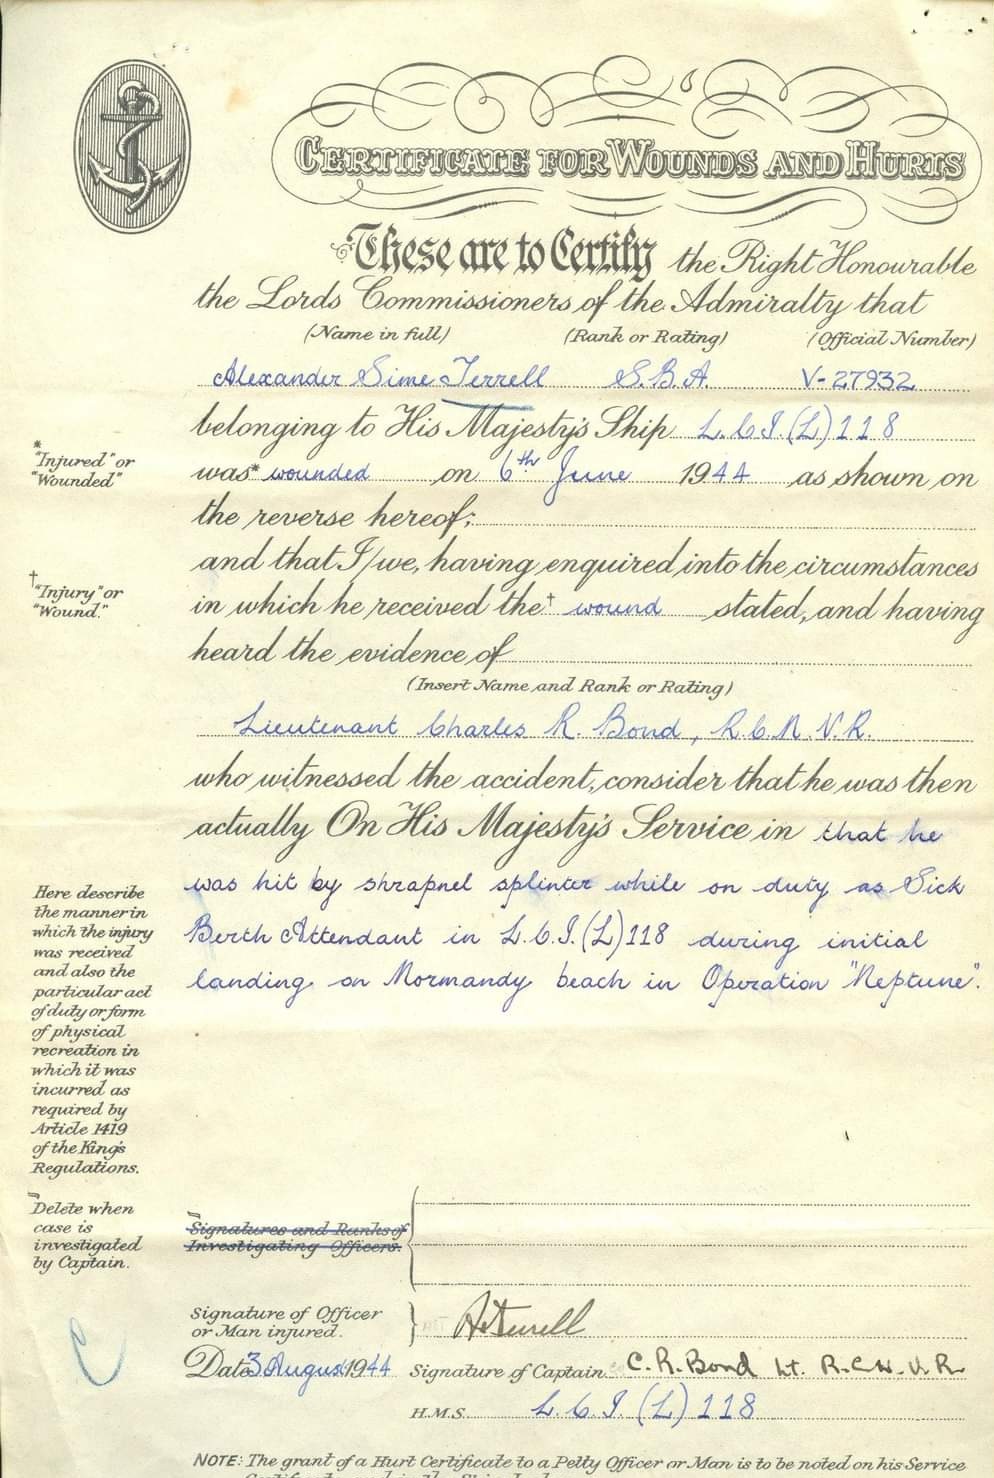 CERTIFICATE FOR WOUNDS AND HURTS
These are to Certify the Right Honourable
the Lords Commissioners of the Admiralty that
(Name in full) (Rank or Rating) (Official Number)
Alexander Sime Terrell S.B.A. V-27932
belonging to His Majesty's Ship L.C.I.(L) 118
* "Injured" or "Wounded"
was* wounded on 6th June 1944 as shown on
the reverse hereof:
and that I/we, having enquired into the circumstances
† "Injury" or "Wound."
in which he received the† wound stated, and having
heard the evidence of
(Insert Name and Rank or Rating)
Lieutenant Charles R. Bond, R.C.N.V.R.
who witnessed the accident, consider that he was then
actually On His Majesty's Service in that he
was hit by shrapnel splinter while on duty as Sick
Berth Attendant in L.C.I.(L) 118 during initial
landing on Normandy beach in Operation "Neptune".
Here describe
the manner in
which the injury
was received
and also the
particular act
of duty or form
of physical
recreation in
which it was
incurred as
required by
Article 1419
of the King's
Regulations.
Delete when
case is
investigated
by Captain.
Signatures and Ranks of
Investigating Officers.
Signature of Officer
or Man injured. A.S. Terrell
Date 3 August 1944 Signature of Captain C.R. Bond Lt. R.C.N.V.R.
H.M.S. L.C.I.(L) 118
NOTE: The grant of a Hurt Certificate to a Petty Officer or Man is to be noted on his Service